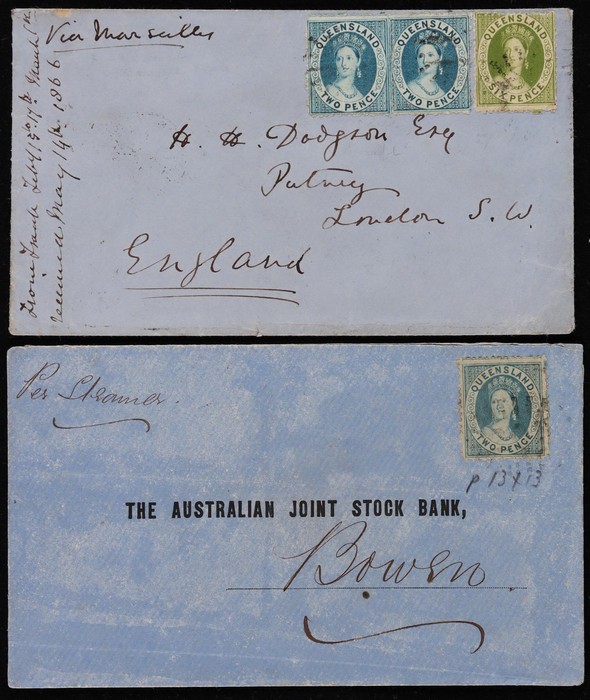 Via Marseilles
QUEENSLAND
TWO PENCE
QUEENSLAND
TWO PENCE
QUEENSLAND
SIX PENCE
H. H. Dodgson Esq
Putney
London S. W.
England
From Frank Feby 13th 17th March 1st
received May 14th 1866
Per Steamer.
QUEENSLAND
TWO PENCE
P 13 x 13
THE AUSTRALIAN JOINT STOCK BANK,
Bowen.